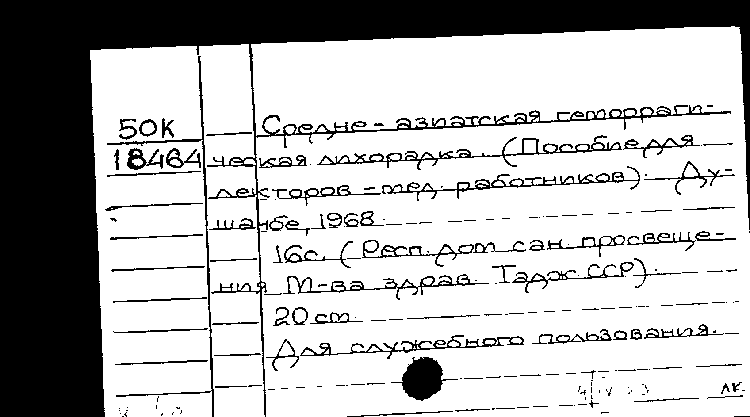 50К
18464
Средне-азиатская геморраги-
ческая лихорадка. (Пособие для
лекторов-мед. работников). Ду-
шанбе, 1968.
16с. (Респ. дом сан. просвеще-
ния М-ва здрав. Тадж ССР).
20 cm.
Для служебного пользования.
ЛК